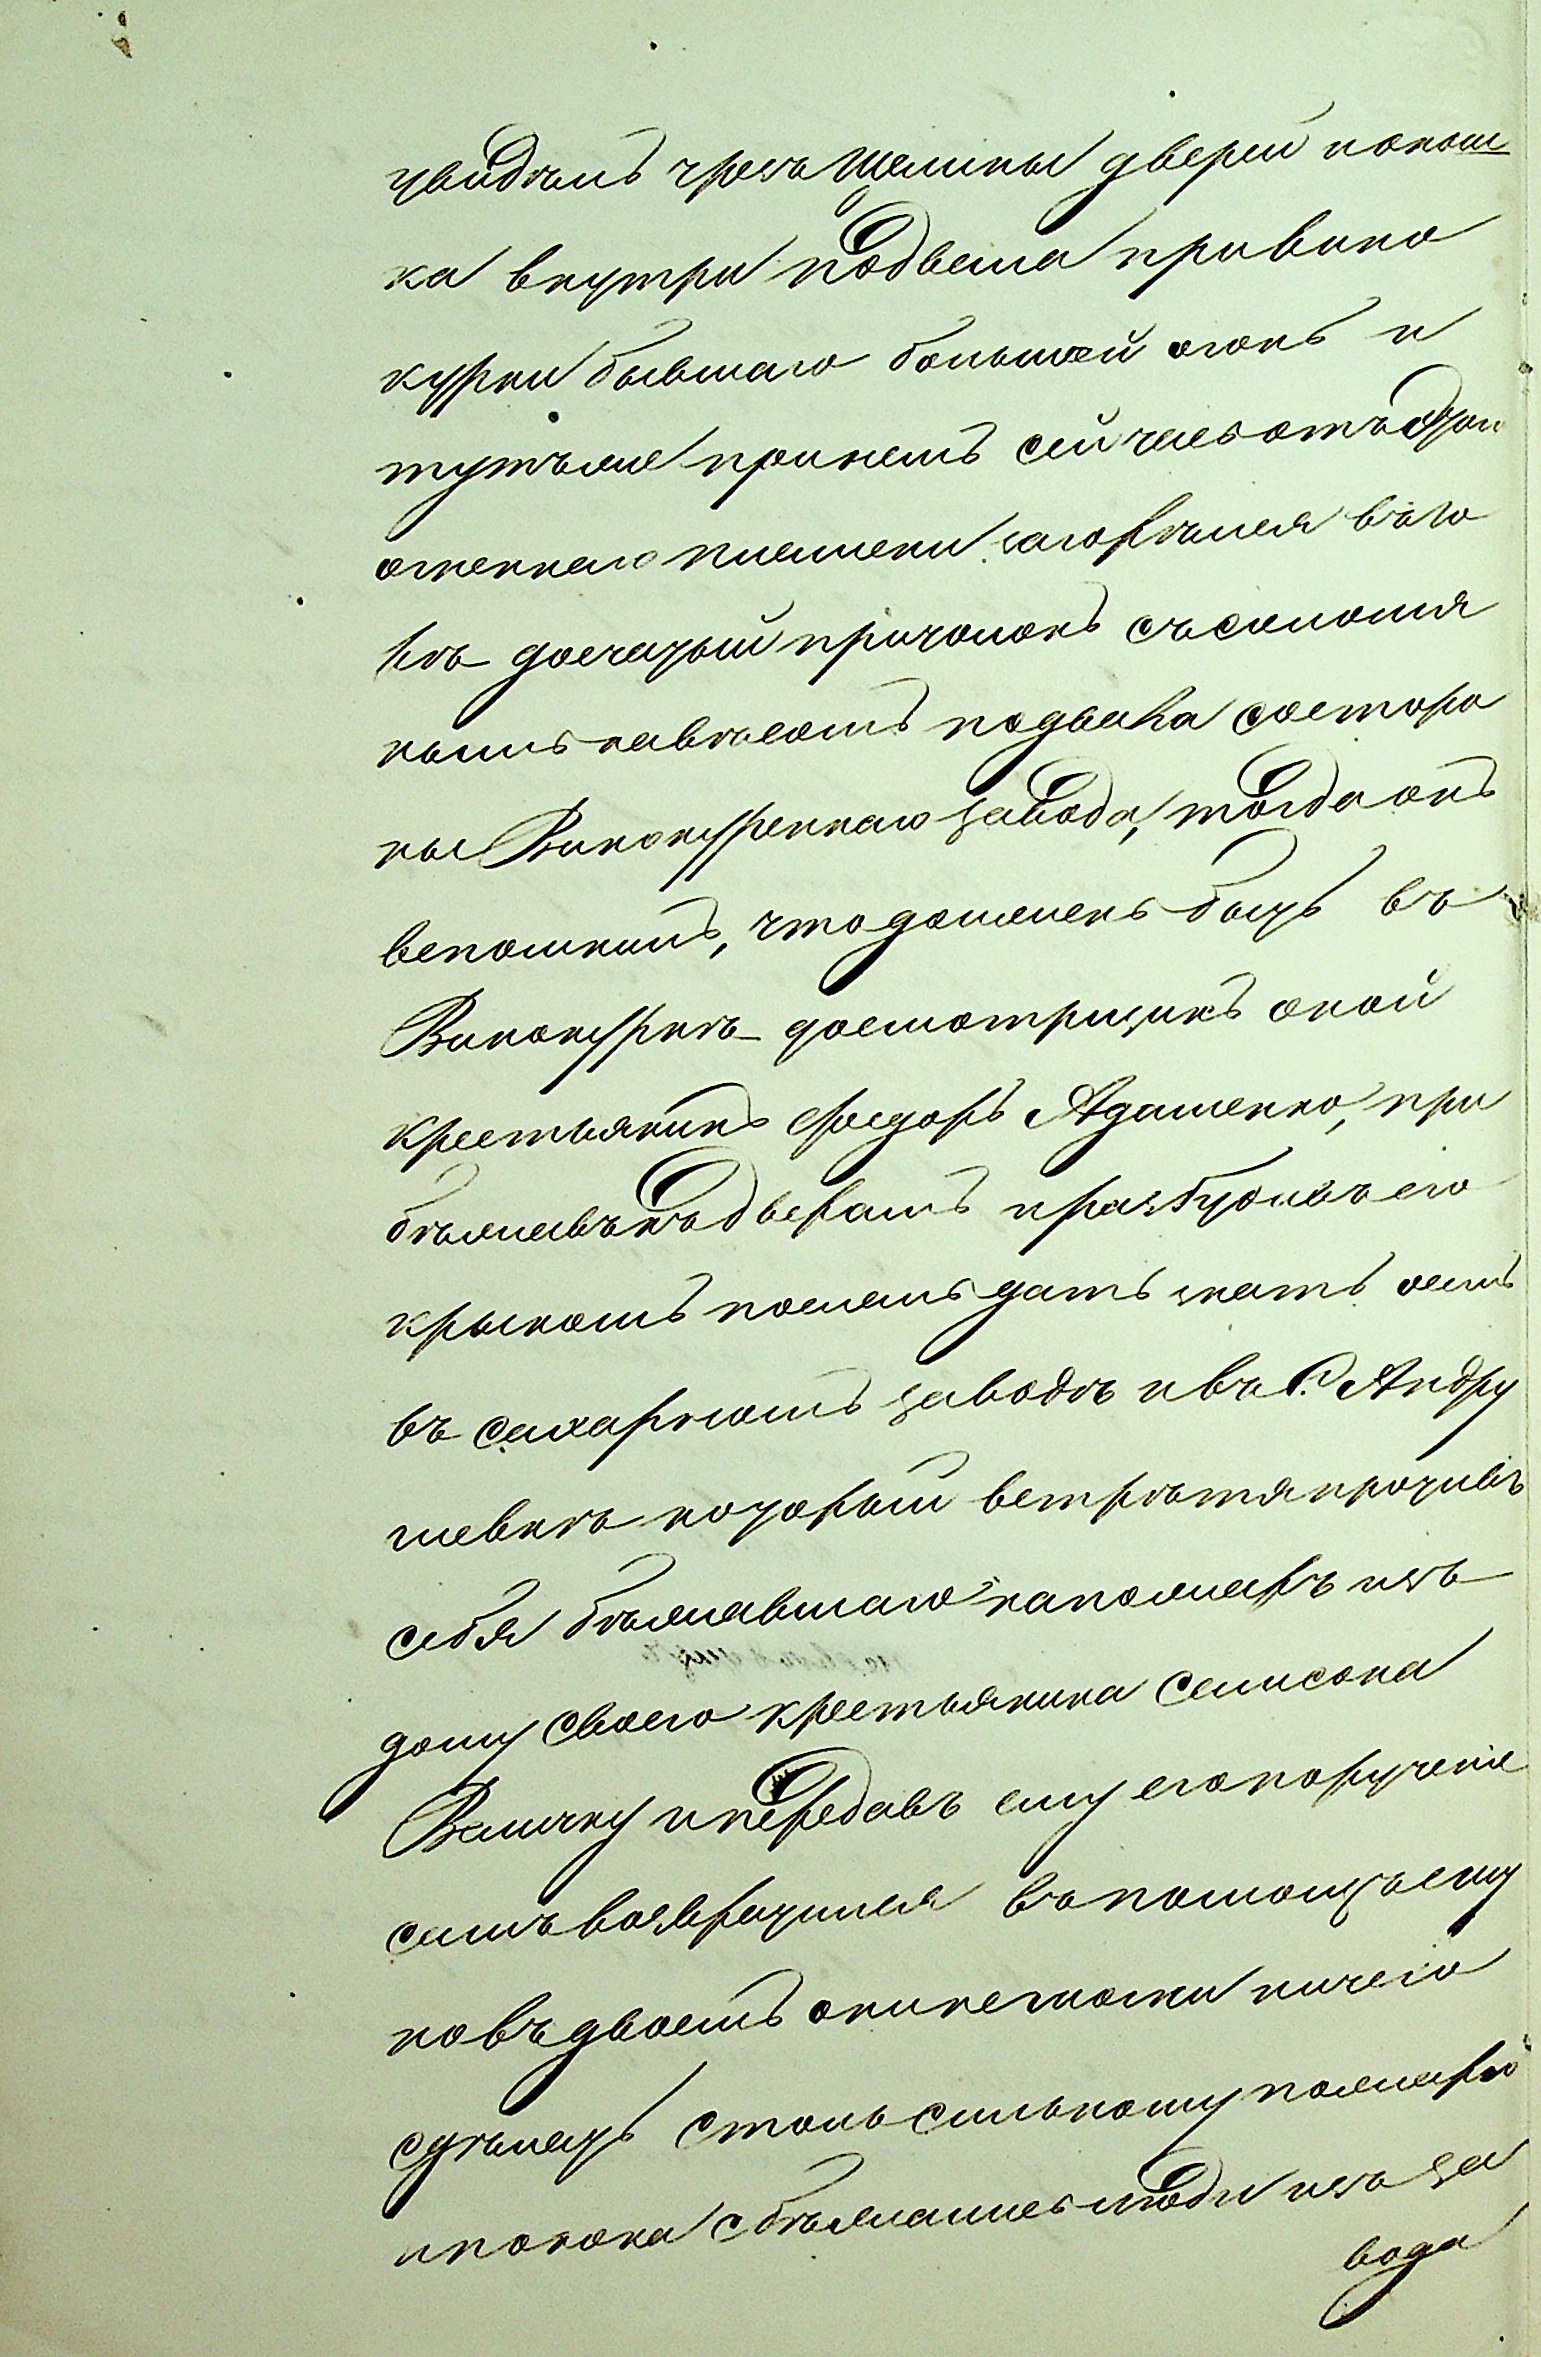 увидѣлъ чрезъ щелины дверей покош
ка внутри подвела при вино
курни бывшаго большой огонь и
тутъ же принетъ сей часъ отъ
огненнаго пламени загорѣлся въ го
рѣ досчатый причолокъ съ соломя
нымъ навѣсомъ подвала со сторо
ны Винокуреннаго завода, тогда онъ
вспомнилъ, что долженъ быть въ
Винокурнѣ досмотрщикъ оной
крестьянинъ Федоръ Адаменко, при
бѣжавъ къ дверямъ и разбудивъ его
крыкомъ послалъ дать знать осемъ
въ сахарномъ заводѣ и въ С. Андру
шевкѣ который встрѣтя противъ
себя бѣжавшаго на пожаръ изъ
дому своего крестьянина Самсона
Величку и передавъ ему его порученіе
самъ возвратился въ помощь ему
но въ двоемъ они не могли ничего
сдѣлать столь сильному пожару
и покока сбѣжались люди изъ за
вода